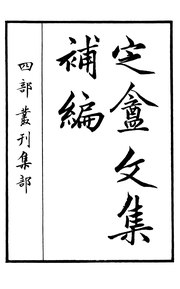 定盦文集
補編
四部叢刊集部